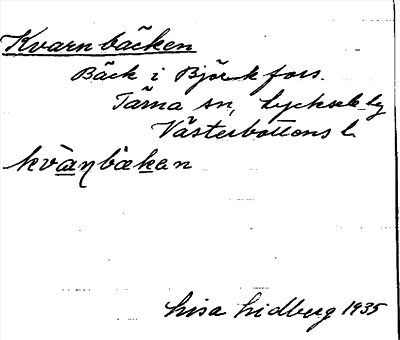 Kvarnbäcken
Bäck i Björkfors.
Tärna sn, Lycksele lg
Västerbottens l.
kvàṇbä̀kan
Lisa Lidberg 1935